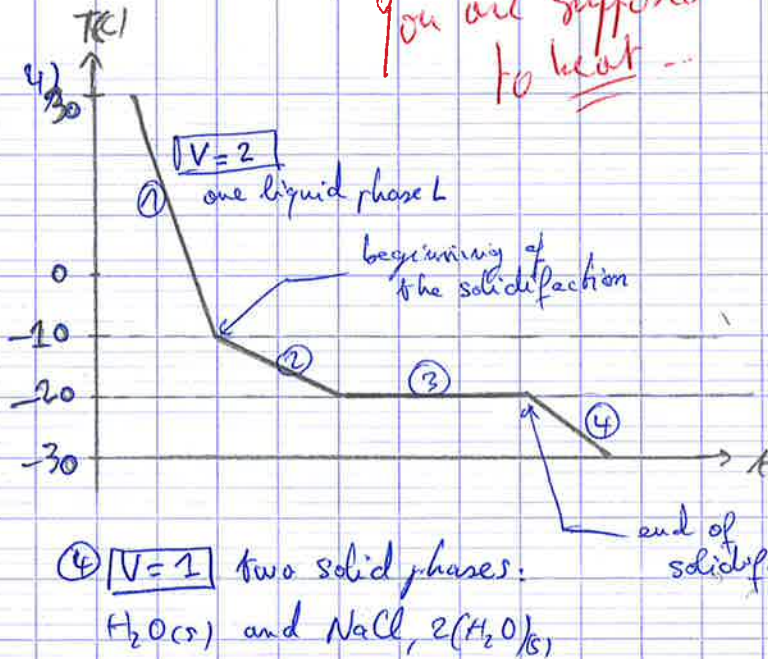 You are suppose
to heat ...
T(°C)
4)
30
V = 2
① one liquid phase L
beginning of
the solidifaction
0
-10
②
③
-20
④
-30
t
end of
solidif
④ V = 1 two solid phases:
H₂O(s) and NaCl, 2(H₂O)(s)